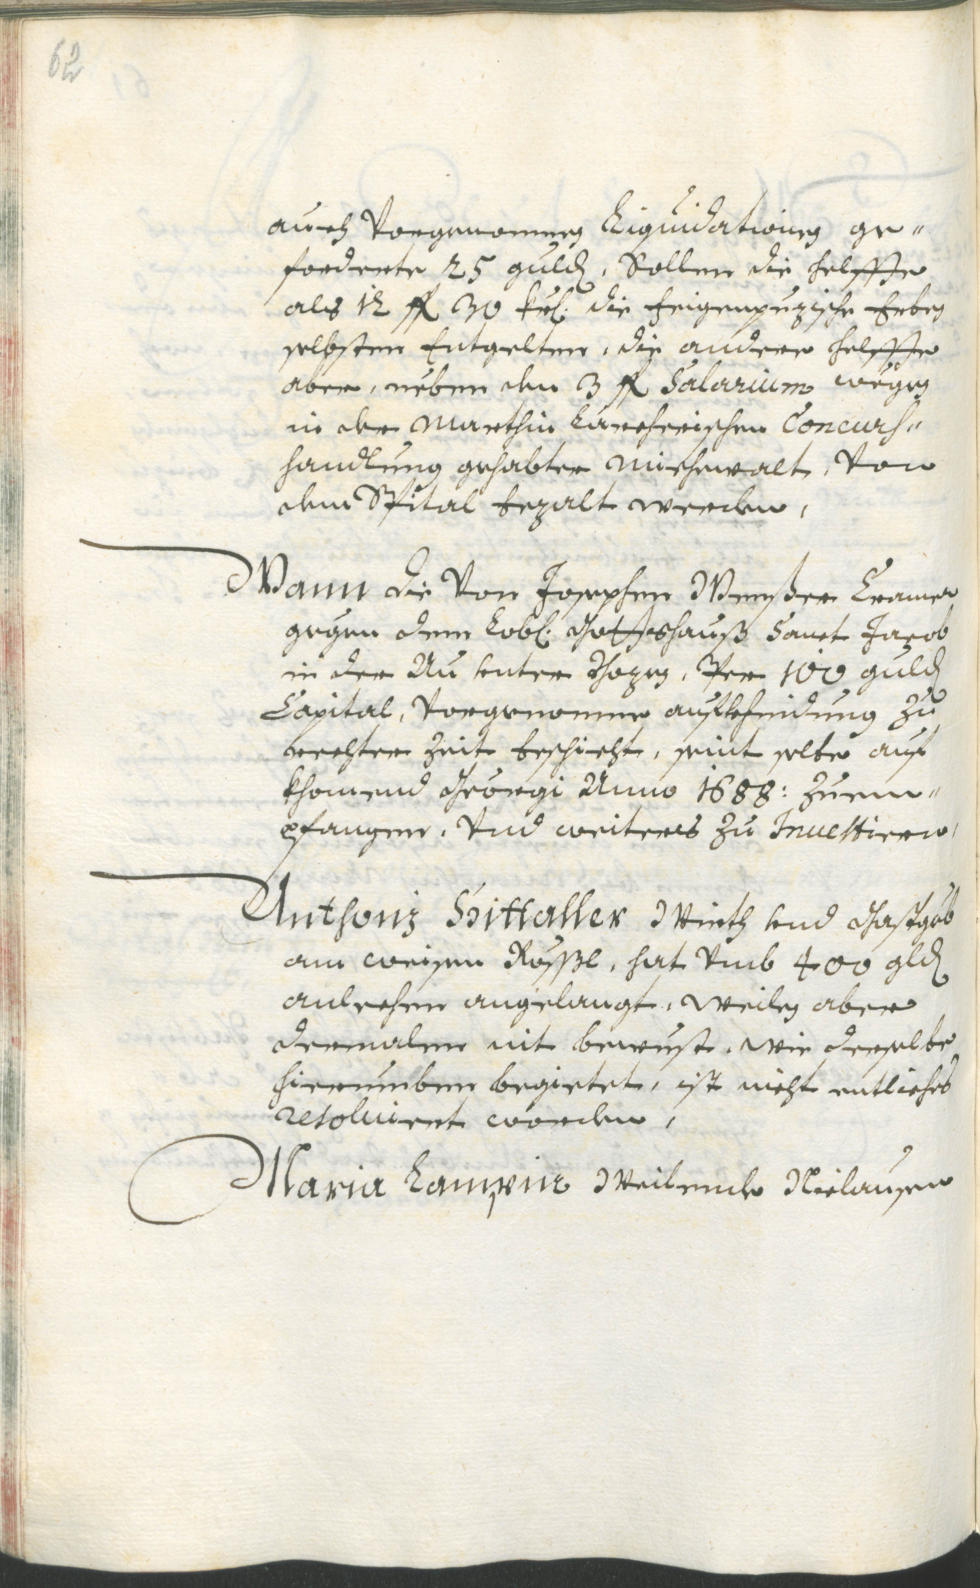 62
auch Vorgenomnen Liquidationen ge-
forderte 25 guld, Sollen die helffte
als 12 fl 30 krl. die Feigenpuzische Erben
selbsten Entgelten, die andere helffte
aber, neben den 3 fl Salarium wegen
in der Marthin Lärcherischen Concurs-
handlung gehabter Miehewalt, Von
dem Spital bezalt werden,
Wann die Von Josephen Cramer
gegen dem Lobl. Gottshauß Sanct Jacob
in der Au unter Pozen, Per 100 guld
Capital, Vorgenomne auffkhindung zu
rechter Zeit beschicht, seint selbe auf
khomend Georgi Anno 1688: zuem-
pfangen, Vnd weiters zu Investieren,
Anthoni Hittaller Wirth und Gastgeb
am weisen Rössl, hat Vmb 400 gld
anlechen angelangt, weilen aber
dermalen nit bewust, wie derselbe
hierumben begietet, ist nicht entliches
resolviert worden,
Maria Weilende Niclausen